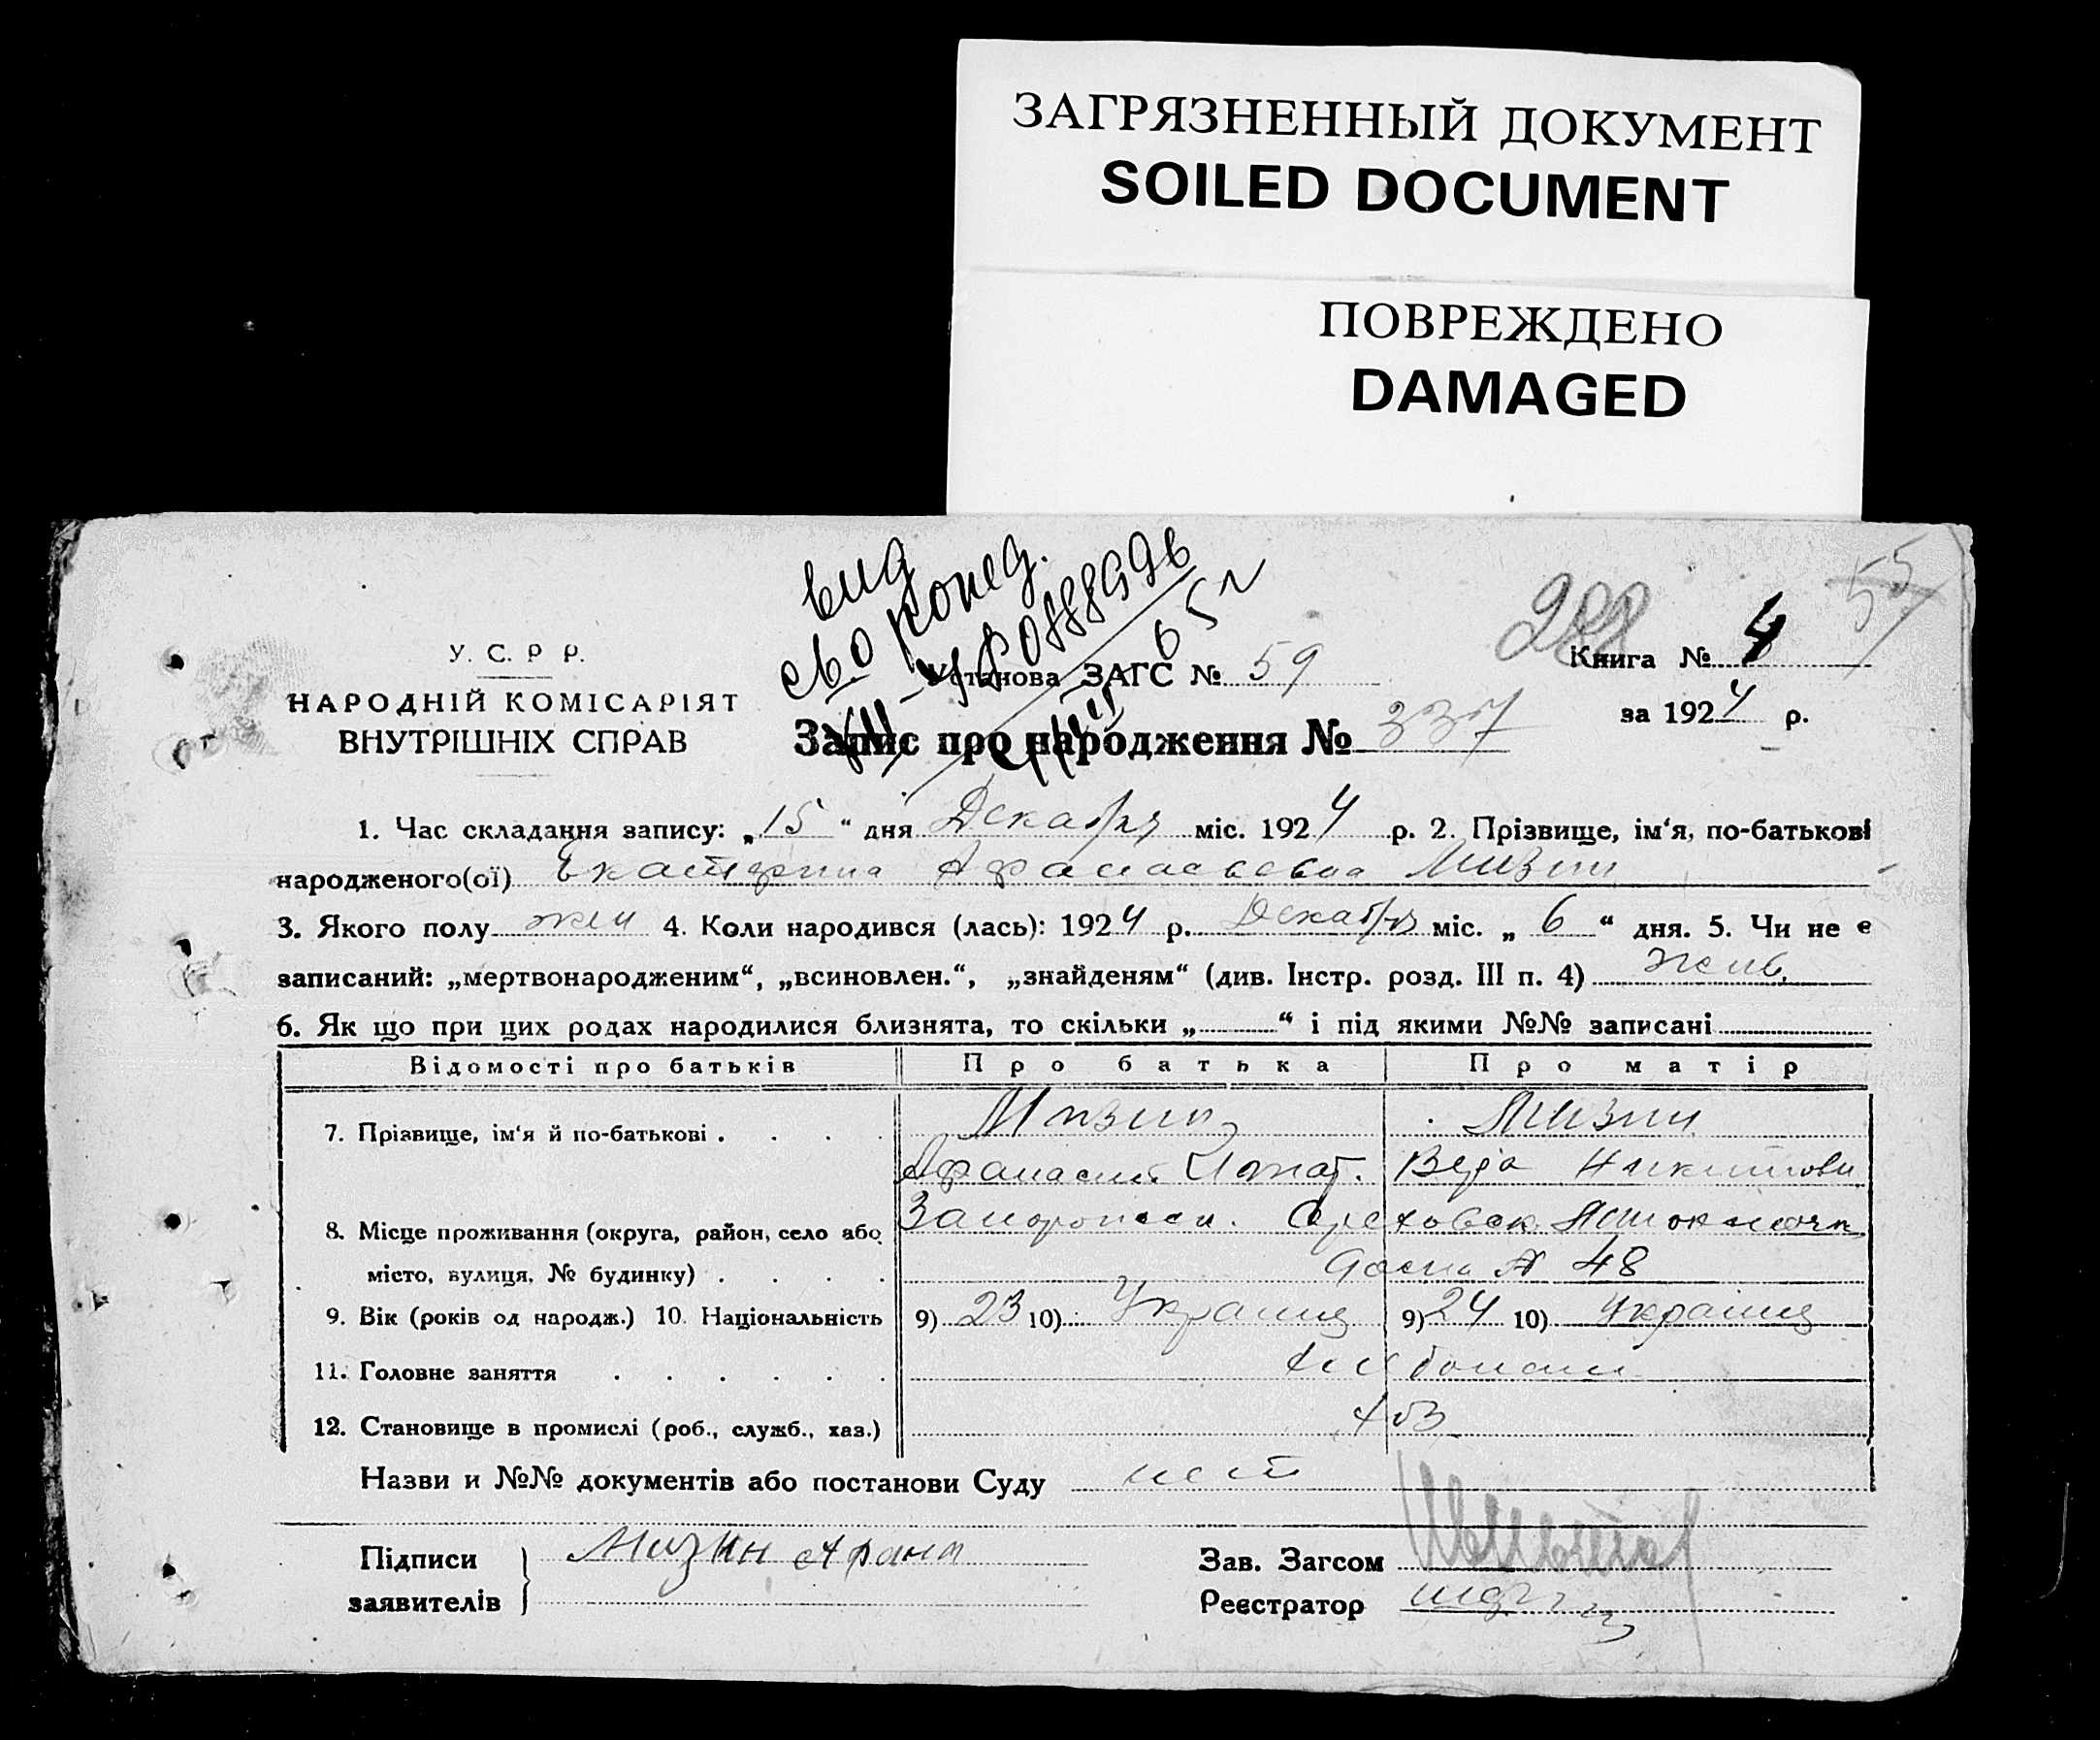 ЗАГРЯЗНЕННЫЙ ДОКУМЕНТ
SOILED DOCUMENT
ПОВРЕЖДЕНО
DAMAGED
55
вид
У. С. Р Р.
НАРОДНІЙ КОМІСАРІЯТ
ВНУТРІШНІХ СПРАВ
Установа ЗАГС № 59
Книга № 4
за 1924 р.
Запис про народження № 337
1. Час складання запису: „15“ дня Декабря міс. 1924 р. 2. Прізвище, ім‘я, по-батькові
народженого(ої) Екатерина Афанасьевна Мизин
3. Якого полу жен 4. Коли народився (лась): 1924 р. Декабря міс. „6“ дня. 5. Чи не є
записаний: „мертвонародженим“, „всиновлен.“, „знайденям“ (див. Інстр. розд. III п. 4) жив.
6. Як що при цих родах народилися близнята, то скільки „ “ і під якими №№ записані
Відомості про батьків Про батька Про матір
7. Прізвище, ім‘я й по-батькові . . . . Мизин Мизин
Афанасий Вера
8. Місце проживання (округа, район, село або
місто, вулиця, № будинку) . . . . № 48
9. Вік (років од народж.) 10. Національність 9) 23 10) Украинц 9) 24 10) Украинц
11. Головне заняття . . . . . .
12. Становище в промислі (роб., служб., хаз.) хоз
Назви и №№ документів або постанови Суду нет
Підписи заявителів Мизин Афана
Зав. Загсом
Реєстратор